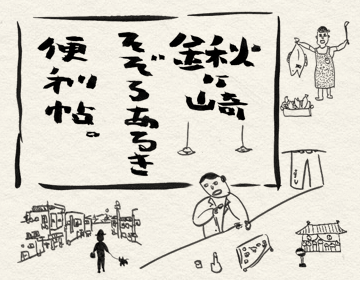 鍬ヶ崎
そぞろあるき
便利帖。